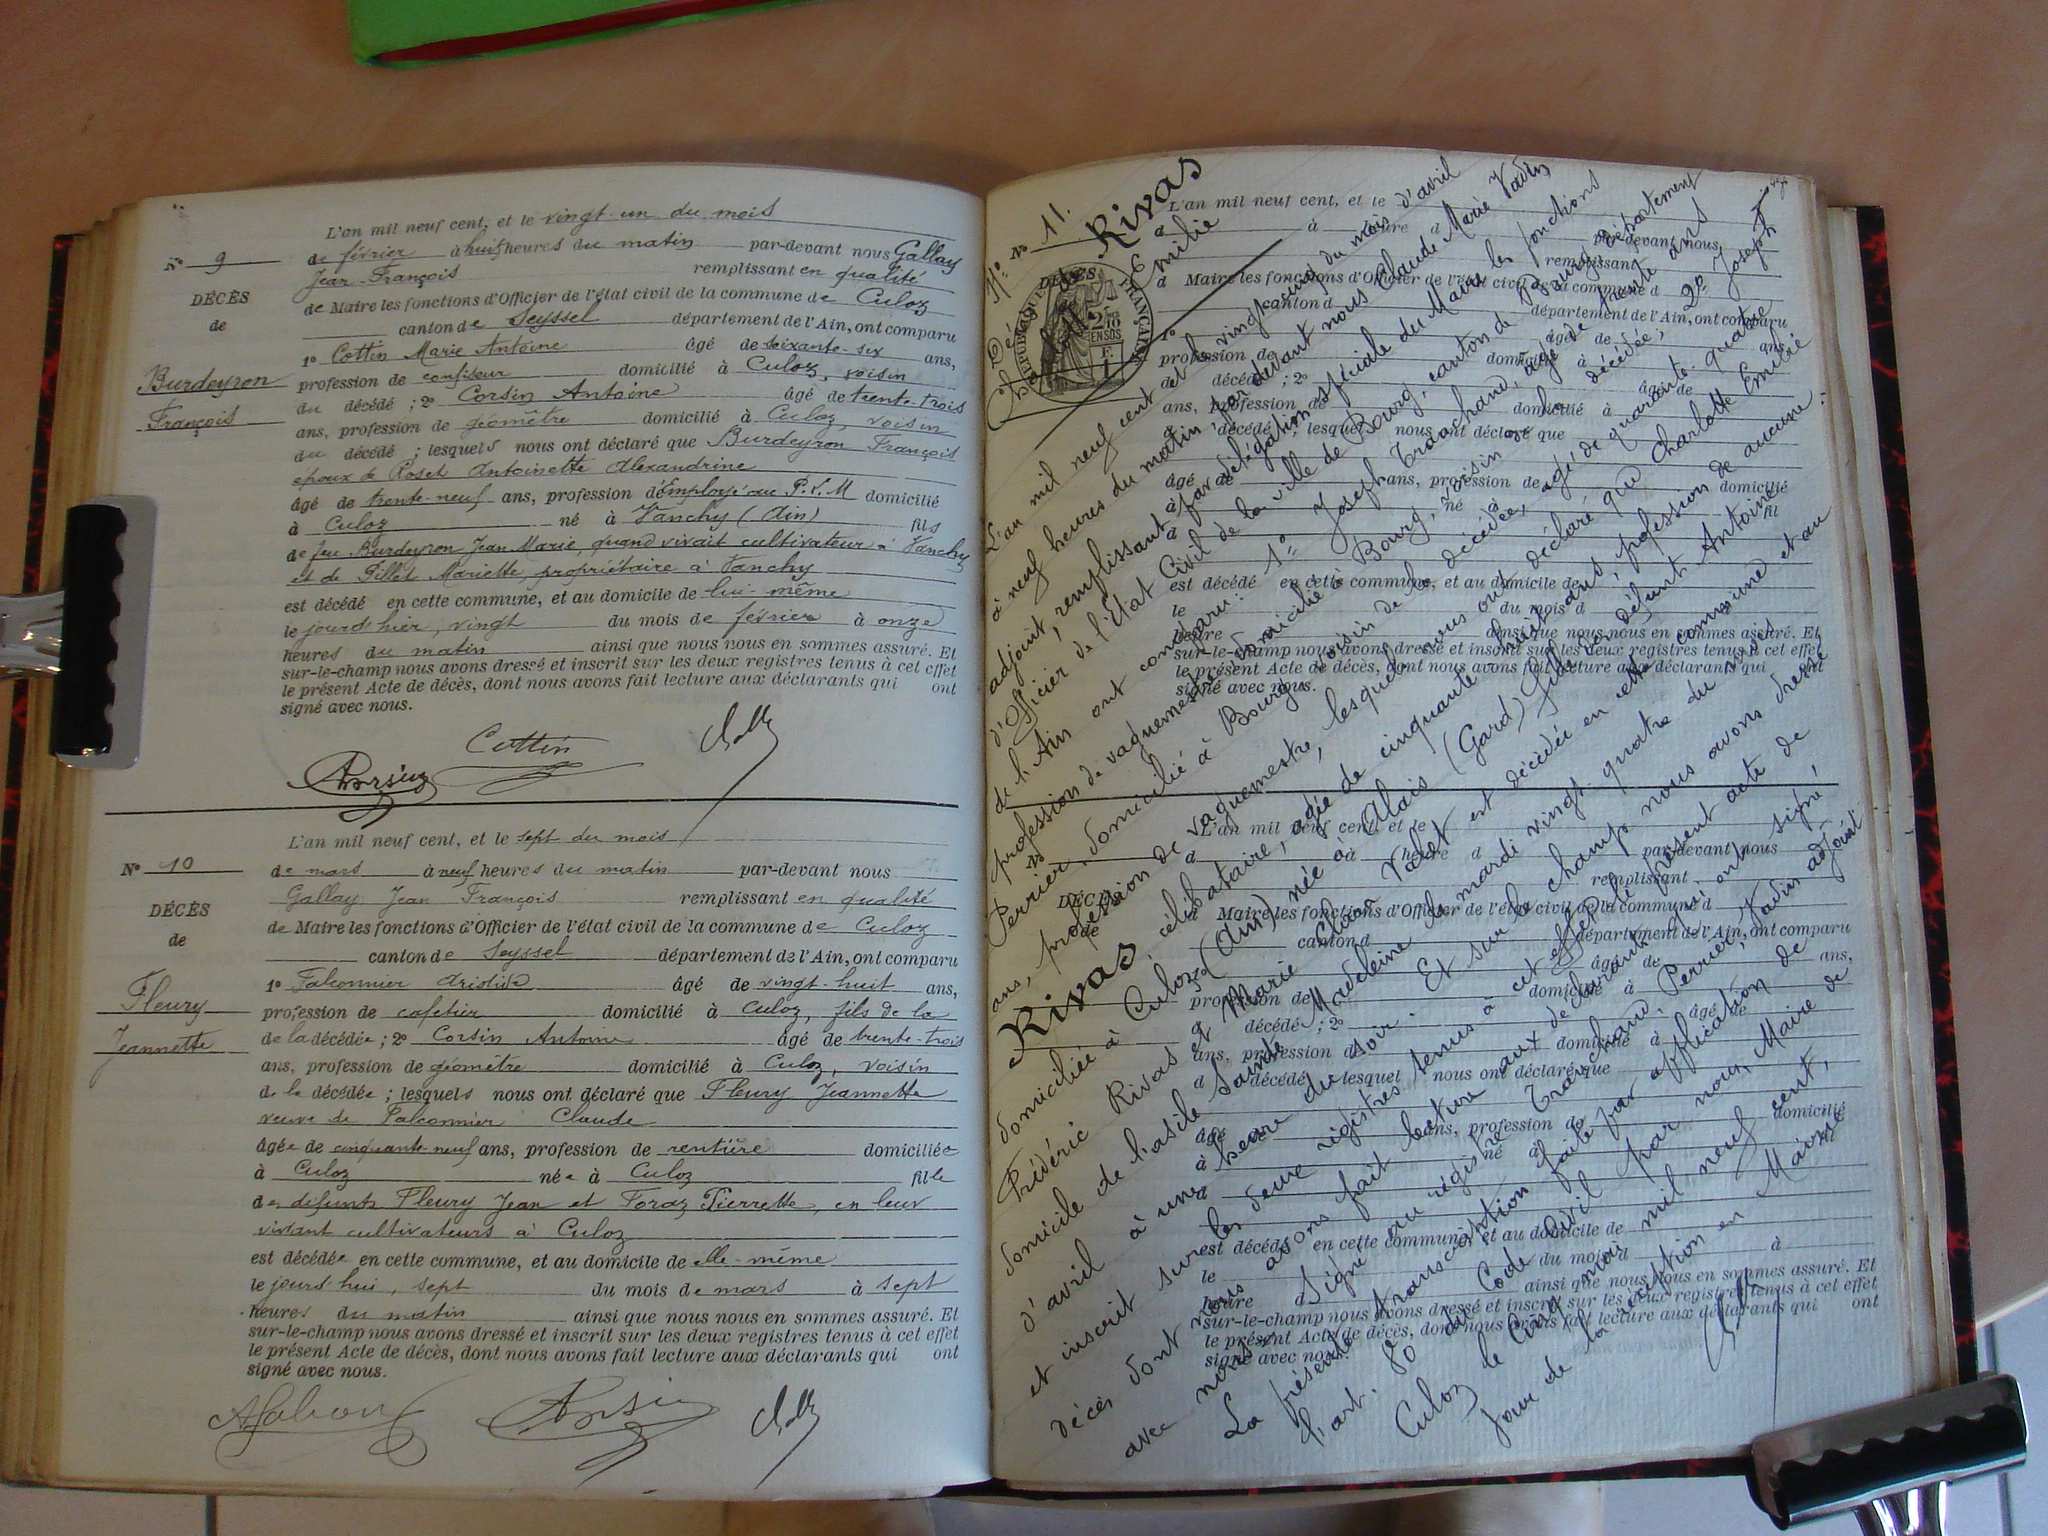 L'an mil neuf cent, et le vingt-un du mois
N° 9 de février à huit heures du matin par-devant nous Gallay
Jean-François remplissant en qualité
DÉCÈS de Maire les fonctions d'Officier de l'état civil de la commune de Culoz
de canton de Seyssel département de l'Ain, ont comparu
1° Cottin Marie Antoine âgé de soixante-six ans,
Burdeyron profession de confiseur domicilié à Culoz, voisin
François du décédé ; 2° Corsin Antoine âgé de trente-trois
ans, profession de géomètre domicilié à Culoz, voisin
du décédé ; lesquels nous ont déclaré que Burdeyron François
époux de Roset Antoinette Alexandrine
âgé de trente-neuf ans, profession d'Employé au P.L.M domicilié
à Culoz né à Vanchy (Ain) fils
de feu Burdeyron Jean Marie, quand vivait cultivateur à Vanchy
et de Pillet Mariette, propriétaire à Vanchy
est décédé en cette commune, et au domicile de lui-même
le jourd'hier, vingt du mois de février à onze
heures du matin ainsi que nous nous en sommes assuré. Et
sur-le-champ nous avons dressé et inscrit sur les deux registres tenus à cet effet
le présent Acte de décès, dont nous avons fait lecture aux déclarants qui ont
signé avec nous.
Cottin
Corsin
L'an mil neuf cent, et le sept du mois
N° 10 de mars à neuf heures du matin par-devant nous
Gallay Jean François remplissant en qualité
DÉCÈS de Maire les fonctions d'Officier de l'état civil de la commune de Culoz
de canton de Seyssel département de l'Ain, ont comparu
1° Falconnier Aristide âgé de vingt-huit ans,
Fleury profession de cafetier domicilié à Culoz, fils de la
Jeannette de la décédée ; 2° Corsin Antoine âgé de trente-trois
ans, profession de géomètre domicilié à Culoz, voisin
de la décédée ; lesquels nous ont déclaré que Fleury Jeannette
veuve de Falconnier Claude
âgée de cinquante-neuf ans, profession de rentière domiciliée
à Culoz née à Culoz fille
des défunts Fleury Jean et Foraz Pierrette, en leur
vivant cultivateurs à Culoz
est décédée en cette commune, et au domicile de elle-même
le jourd'hui, sept du mois de mars à sept
heures du matin ainsi que nous nous en sommes assuré. Et
sur-le-champ nous avons dressé et inscrit sur les deux registres tenus à cet effet
le présent Acte de décès, dont nous avons fait lecture aux déclarants qui ont
signé avec nous.
N° 11.
Décès de Rivas
Charlotte Emilie
L'an mil neuf cent et le vingt cinq du mois d'avril
à neuf heures du matin, par devant nous Claude Marie Vadin
adjoint, remplissant par délégation spéciale du Maire les fonctions
d'Officier de l'État Civil de la ville de Bourg, canton de Bourg, département
de l'Ain ont comparu : 1° Joseph Tranchand, âgé de trente ans
profession de vaguemestre domicilié à Bourg, voisin de la décédée, 2° Joseph
Perrier, domicilié à Bourg voisin de la décédée, âgé de quarante-quatre
ans, profession de vaguemestre, lesquels nous ont déclaré que Charlotte Emilie
Rivas, célibataire, âgée de cinquante-huit ans, profession de aucune
domiciliée à Culoz (Ain) née à Alais (Gard) fille de défunt Antoine
Frédéric Rivas et Marie Valat est décédée en cette commune et au
domicile de l'asile Sainte Madeleine le mardi vingt quatre du mois
d'avril à une heure du soir. Et sur le champ nous avons dressé
et inscrit sur les deux registres tenus à cet effet le présent acte de
décès dont nous avons fait lecture aux déclarants qui ont signé
avec nous. Signé au registre Tranchand, Perrier, Vadin adjoint
La présente transcription faite par application de
l'art. 80 du Code Civil par nous, Maire de
Culoz le cinq mai mil neuf cent,
jour de la réception en Mairie
L'an mil neuf cent, et le
à heure d par-devant nous
remplissant
d Maire les fonctions d'Officier de l'état civil de la commune d
canton d département de l'Ain, ont comparu
RÉPUBLIQUE FRANÇAISE
L'an mil neuf cent, et le
N°
DÉCÈS
de
d à heure d par-devant nous
remplissant
d Maire les fonctions d'Officier de l'état civil de la commune d
canton d département de l'Ain, ont comparu
est décédé en cette commune, et au domicile de
le du mois d à
heure d ainsi que nous nous en sommes assuré. Et
sur-le-champ nous avons dressé et inscrit sur les deux registres tenus à cet effet
le présent Acte de décès, dont nous avons fait lecture aux déclarants qui ont
signé avec nous.